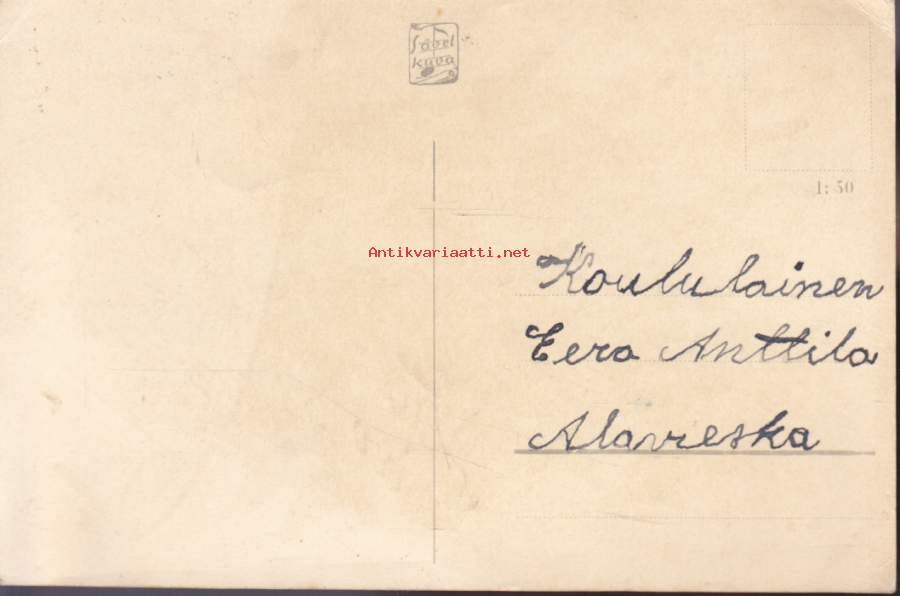 Sävel
kuva
1:50
Antikvariaatti.net
Koululainen
Eero Anttila
Alavieska